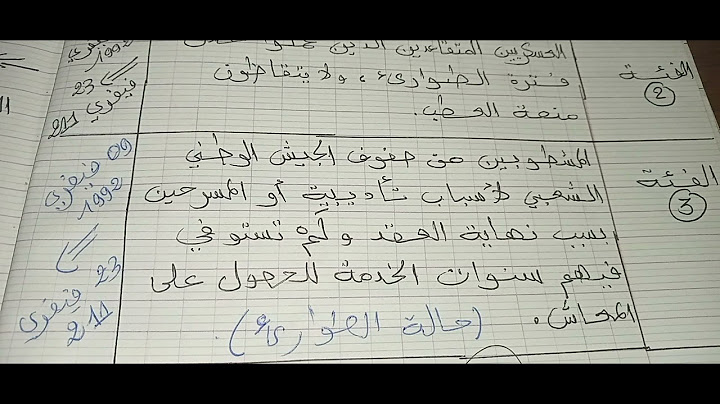 الفئة
2
العسكريين المتقاعدين الذين
فترة الطوارىء، ولا يتقاظون
منحة العطب.
فيفري
1992
23
فيفري
211
الفئة
3
المشطوبين من صفوف الجيش الوطني
الشعبي لأسباب تأديبية أو المسرحين
بسبب نهاية العقد ولم تستوفي
فيهم سنوات الخدمة للحصول على
المعاش. (حالة الطوارىء).
09 فيفري
1992
23
فيفري
211